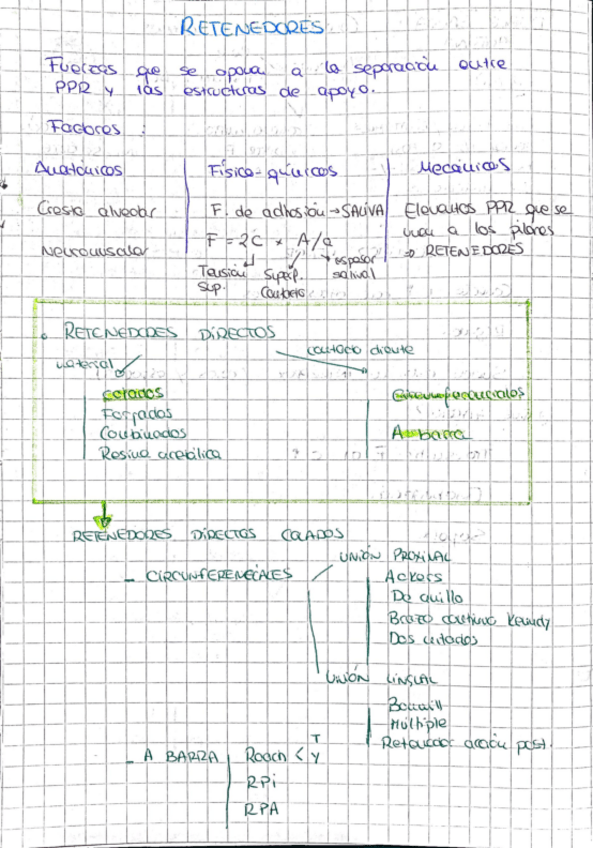 RETENEDORES
Fuerzas que se oponen a la separación entre
PPR y las estructuras de apoyo.
Factores :
Anatómicos
Cresta alveolar
Neuromuscular
Físico-químicos
F. de adhesión → SALIVA
F = 2C × A/a
Tensión Sup.
Superf. Contacto
espesor salival
Mecánicos
Elementos PPR que se
unen a los pilares
⇒ RETENEDORES
• RETENEDORES DIRECTOS
material
contacto diente
colados
Forjados
Combinados
Resina acetálica
Circunferenciales
A barra
RETENEDORES DIRECTOS COLADOS
– CIRCUNFERENCIALES
UNIÓN PROXIMAL
Ackers
De anillo
Brazo continuo Kennedy
Dos unidos
UNIÓN LINGUAL
Bonwill
Múltiple
Retenedor acción post.
– A BARRA
Roach < T
Y
RPi
RPA